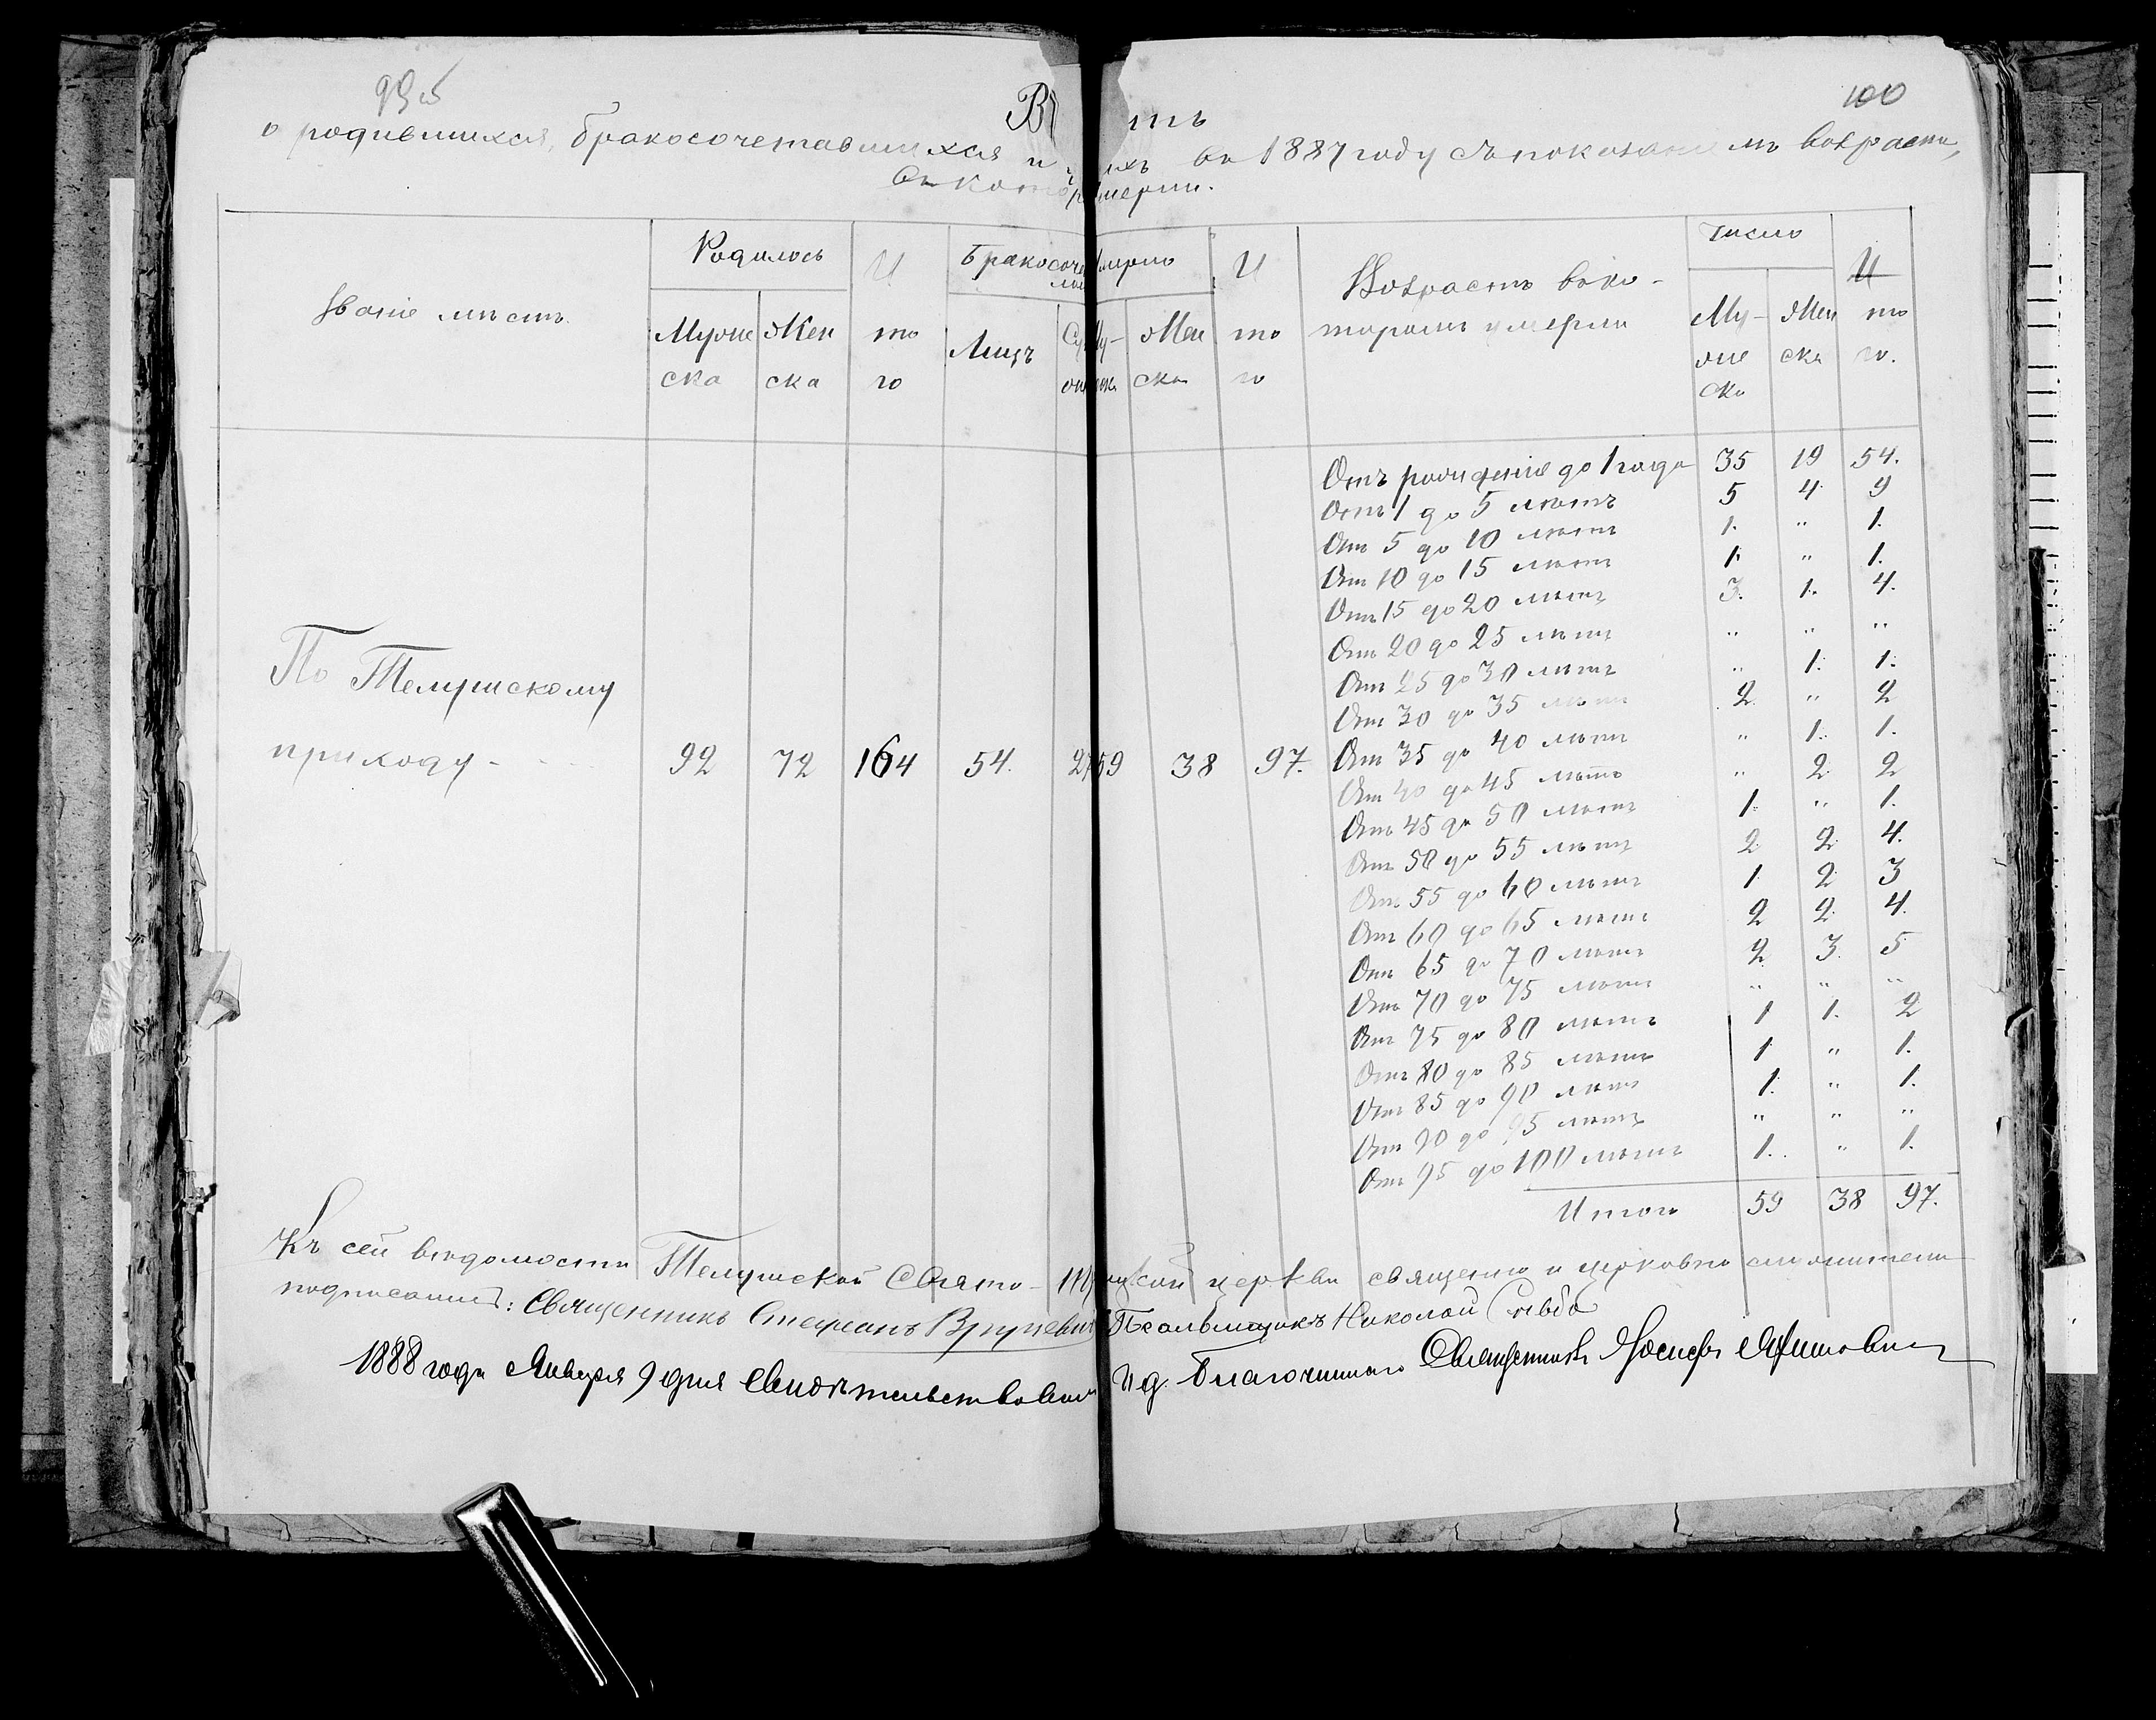 99об
100
о родившихся, бракосочетавшихся и ихъ въ 1887 году съ показаніемъ возраста,
въ кото мерли.
Званіе мѣстъ.
Родилось
Мужеска
Женска
Итого
Бракосоче
Лицъ
мерло
Женска
Итого
Возрастъ въ ко-
торомъ умерли
Число
Му-
же
ска
Жен
ска
Ито
го.
По Телушскому
приходу - 92 72 164 54. 27 59 38 97.
Отъ рожденія до 1 года 35 19 54.
Отъ 1 до 5 лѣтъ 5 4 9
Отъ 5 до 10 лѣтъ 1. " 1.
Отъ 10 до 15 лѣтъ 1. " 1.
Отъ 15 до 20 лѣтъ 3. 1. 4.
Отъ 20 до 25 лѣтъ " " "
Отъ 25 до 30 лѣтъ " 1. 1.
Отъ 30 до 35 лѣтъ 2 " 2
Отъ 35 до 40 лѣтъ " 1. 1.
Отъ 40 до 45 лѣтъ " 2 2
Отъ 45 до 50 лѣтъ 1. " 1.
Отъ 50 до 55 лѣтъ 2 2 4.
Отъ 55 до 60 лѣтъ 1 2 3
Отъ 60 до 65 лѣтъ 2 2 4.
Отъ 65 до 70 лѣтъ 2 3. 5
Отъ 70 до 75 лѣтъ " " "
Отъ 75 до 80 лѣтъ 1 1. 2
Отъ 80 до 85 лѣтъ 1 " 1.
Отъ 85 до 90 лѣтъ 1. " 1.
Отъ 90 до 95 лѣтъ " " "
Отъ 95 до 100 лѣтъ 1. " 1.
Итого 59 38 97.
Къ сей вѣдомости Телушской Свято- церкви священно и церковно служители
подписались: Священникъ Стефанъ Псаломщикъ Николай
1888 года Января 9 дня Свидѣтельствовалъ И.д. Благочиннаго Священникъ Іосифъ